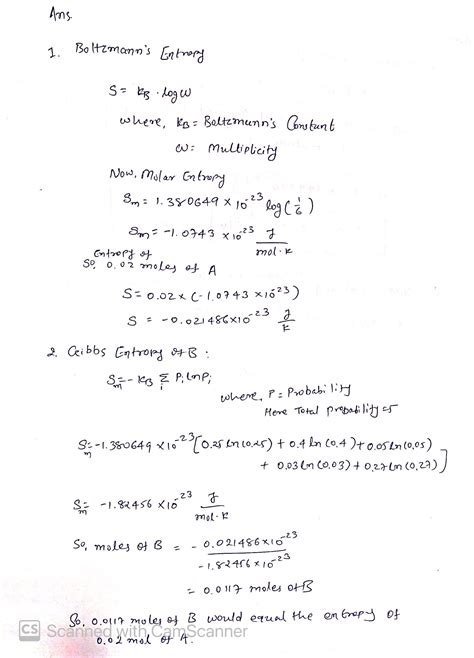 Ans.
1. Boltzmann's Entropy
S = kB . log ω
where, kB = Boltzmann's Constant
ω = Multiplicity
Now, Molar Entropy
Sm = 1.380649 × 10^-23 log(1/6)
Sm = -1.0743 × 10^-23 J/mol.K
Entropy of
So, 0.02 moles of A
S = 0.02 × (-1.0743 × 10^-23)
S = -0.021486 × 10^-23 J/K
2. Gibbs Entropy of B :
Sm = - kB Σi Pi ln Pi
where, P = Probability
Here Total probability = 5
Sm = -1.380649 × 10^-23 [0.25 ln(0.25) + 0.4 ln(0.4) + 0.05 ln(0.05)
+ 0.03 ln(0.03) + 0.27 ln(0.27)]
Sm = -1.82456 × 10^-23 J/mol.K
So, moles of B = - 0.021486 × 10^-23 / -1.82456 × 10^-23
= 0.0117 moles of B
So, 0.0117 moles of B would equal the entropy of
0.02 mol of A.
CS Scanned with CamScanner